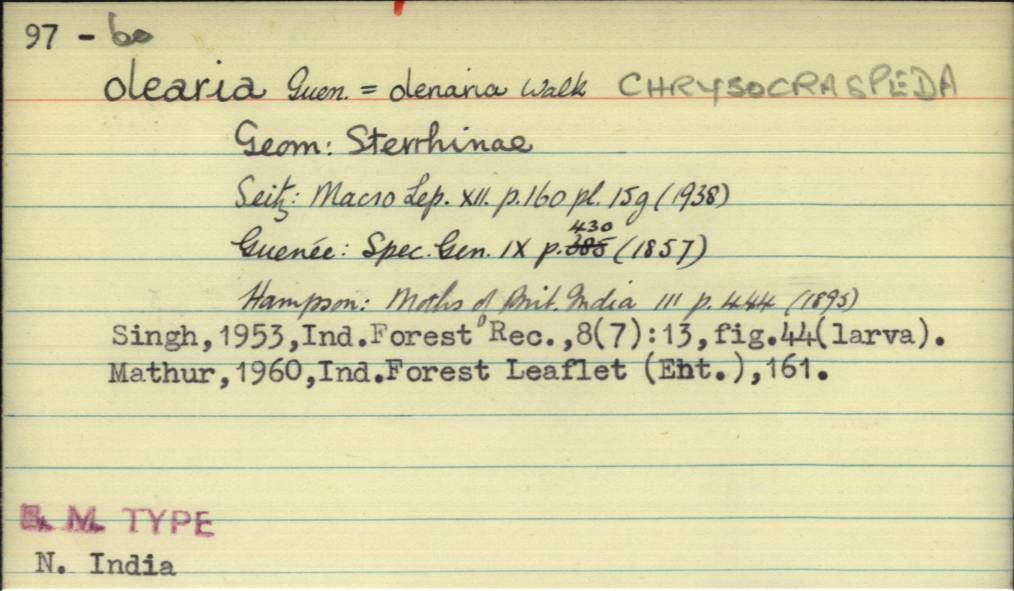 97 - 60
olearia Guen. = olenaria Walk CHRYSOCRASPEDA
Geom: Sterrhinae
Seitz: Macro Lep. XII. p.160 pl. 15g (1938)
430
Guenée: Spec. Gen. IX p. 385 (1857)
Hampson: Moths of Brit. India III p. 444 (1895)
Singh,1953,Ind.Forest Rec.,8(7):13,fig.44(larva).
Mathur,1960,Ind.Forest Leaflet (Ent.),161.
B. M. TYPE
N. India